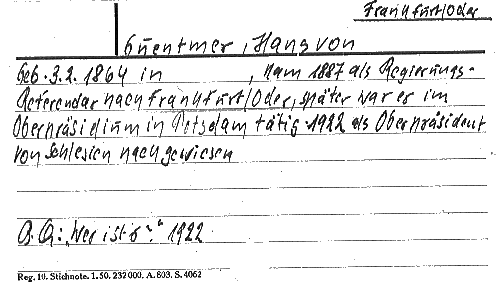 Frankfurt/Oder
Guentmer, Hans von
Geb. 3.2. 1864 in , kam 1887 als Regierungs-
Referendar nach Frankfurt/Oder, später war er im
Oberpräsidium in Potsdam tätig. 1922 als Oberpräsident
von Schlesien nachgewiesen
O.Q.: „Wer ist's?" 1922
Reg. 10. Stichnote. 1. 50. 232 000. A. 603. S. 4062